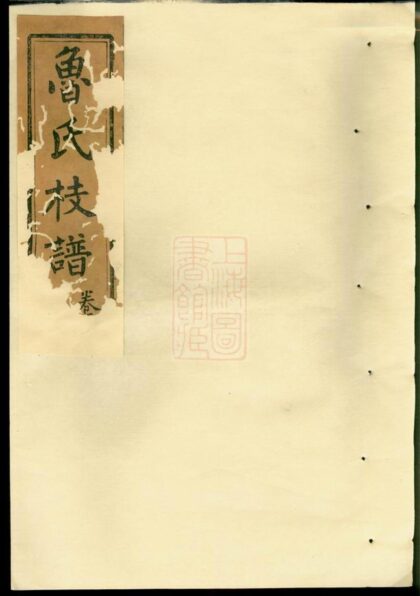 魯氏枝譜
卷
上海圖
書館藏